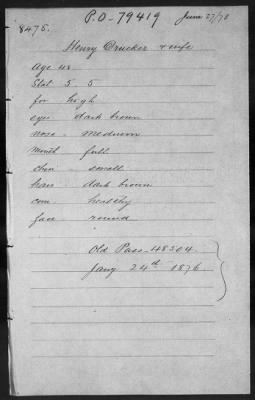 8475. P.O - 79419 June 27/78
Henry Drucker & wife
Age 43
Stat 5 5
for high
eyes dark brown
nose medium
Mouth full
chin small
hair dark brown
com healthy
face round
Old Pass. 48504
Jany 24th 1876